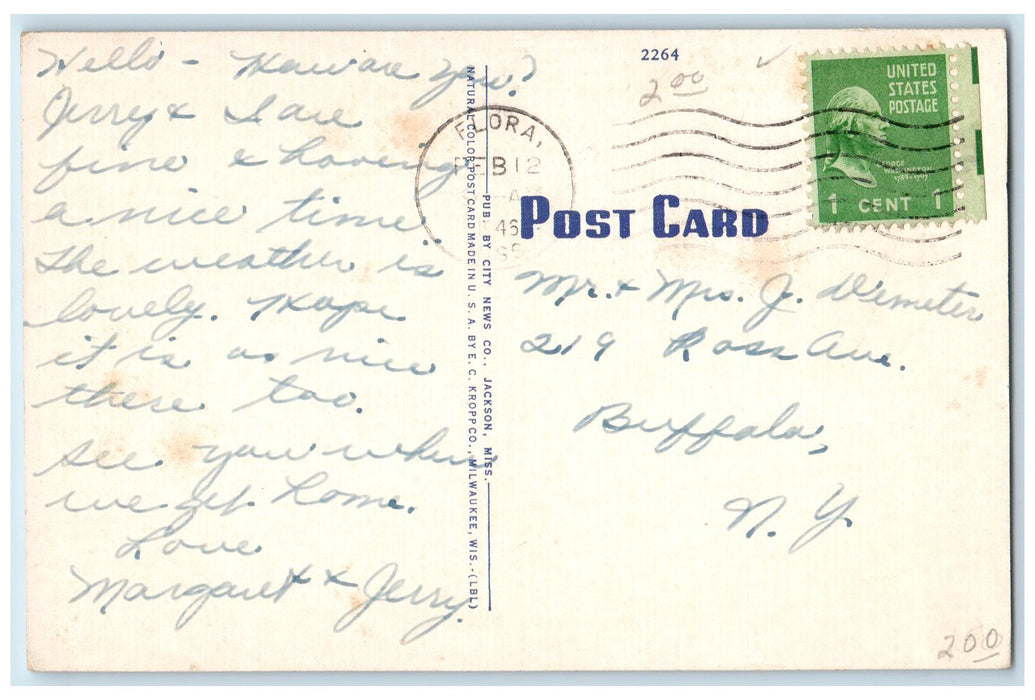 Hello - How are you?
Jerry & I are
fine & having
a nice time.
The weather is
lovely. Hope
it is as nice
there too.
See you when
we get home.
Love
Margaret & Jerry.
NATURAL COLOR POST CARD MADE IN U. S. A. BY E. C. KROPP CO., MILWAUKEE, WIS.-(LBL)
PUB. BY CITY NEWS CO., JACKSON, MISS.
2264
2 00
FLORA,
FEB 12
AM
46
UNITED
STATES
POSTAGE
GEORGE
WASHINGTON
1789-1797
1 CENT 1
POST CARD
Mr. & Mrs. J. Demeter
219 Ross Ave.
Buffalo,
N. Y.
200